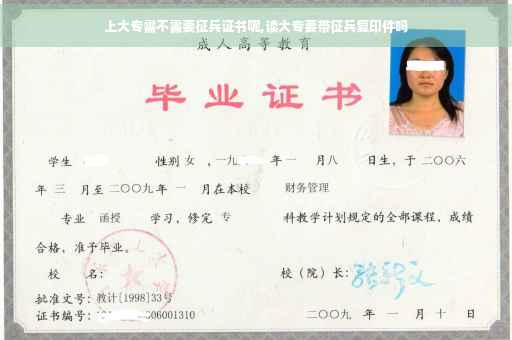 上大专需不需要征兵证书呢,读大专要带征兵复印件吗
成人高等教育
毕业证书
学生 性别 女 ，一九 年 一 月 八 日生，于 二〇〇六
年 三 月至 二〇〇九 年 一 月在本校 财务管理
专业 函授 学习，修完 专 科教学计划规定的全部课程，成绩
合格，准予毕业。
校 名： 校（院）长：
批准文号：教计[1998]33号
证书编号： 06001310 二〇〇九 年 一 月 十 日